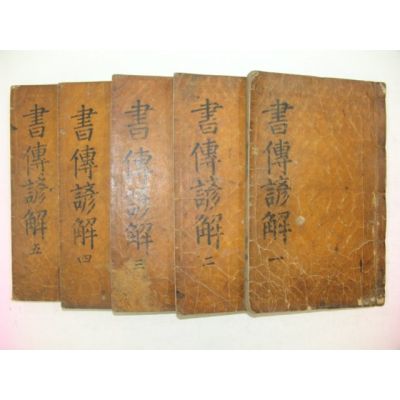 書傳諺解 一
書傳諺解 二
書傳諺解 三
書傳諺解 四
書傳諺解 五